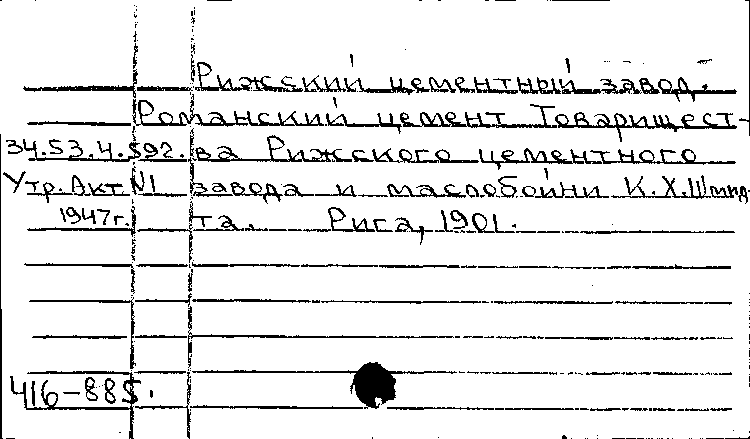 Рижский цементный завод.
Романский цемент Товарищест-
34.53.4.592. ва Рижского цементного
Утр. Акт №1 завода и маслобойни К.Х.Шмид-
1947г. та. Рига, 1901.
416-885.